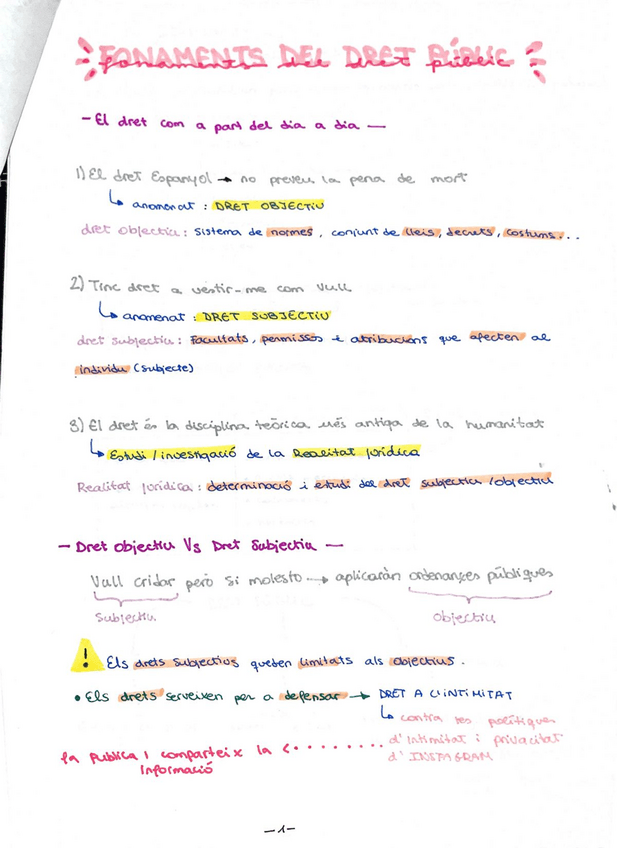 FONAMENTS DEL DRET PÚBLIC
- El dret com a part del dia a dia -
1) El dret Espanyol → no preveu la pena de mort
↳ anomenat : DRET OBJECTIU
dret objectiu : sistema de normes, conjunt de lleis, decrets, costums...
2) Tinc dret a vestir-me com vull
↳ anomenat : DRET SUBJECTIU
dret subjectiu : Facultats, permissos i atribucions que afecten al
individu (subjecte)
3) El dret és la disciplina teòrica més antiga de la humanitat
↳ Estudi / investigació de la Realitat jurídica
Realitat jurídica : determinació i estudi del dret subjectiu / objectiu
- Dret objectiu Vs Dret Subjectiu -
Vull cridar però si molesto → aplicaràn ordenances públiques
Subjectiu. Objectiu
! Els drets subjectius queden limitats als objectius.
• Els drets serveixen per a defensar → DRET A L'INTIMITAT
↳ contra les polítiques
d'intimitat i privacitat
d'INSTAGRAM
fa pública i comparteix la <........
informació
-1-